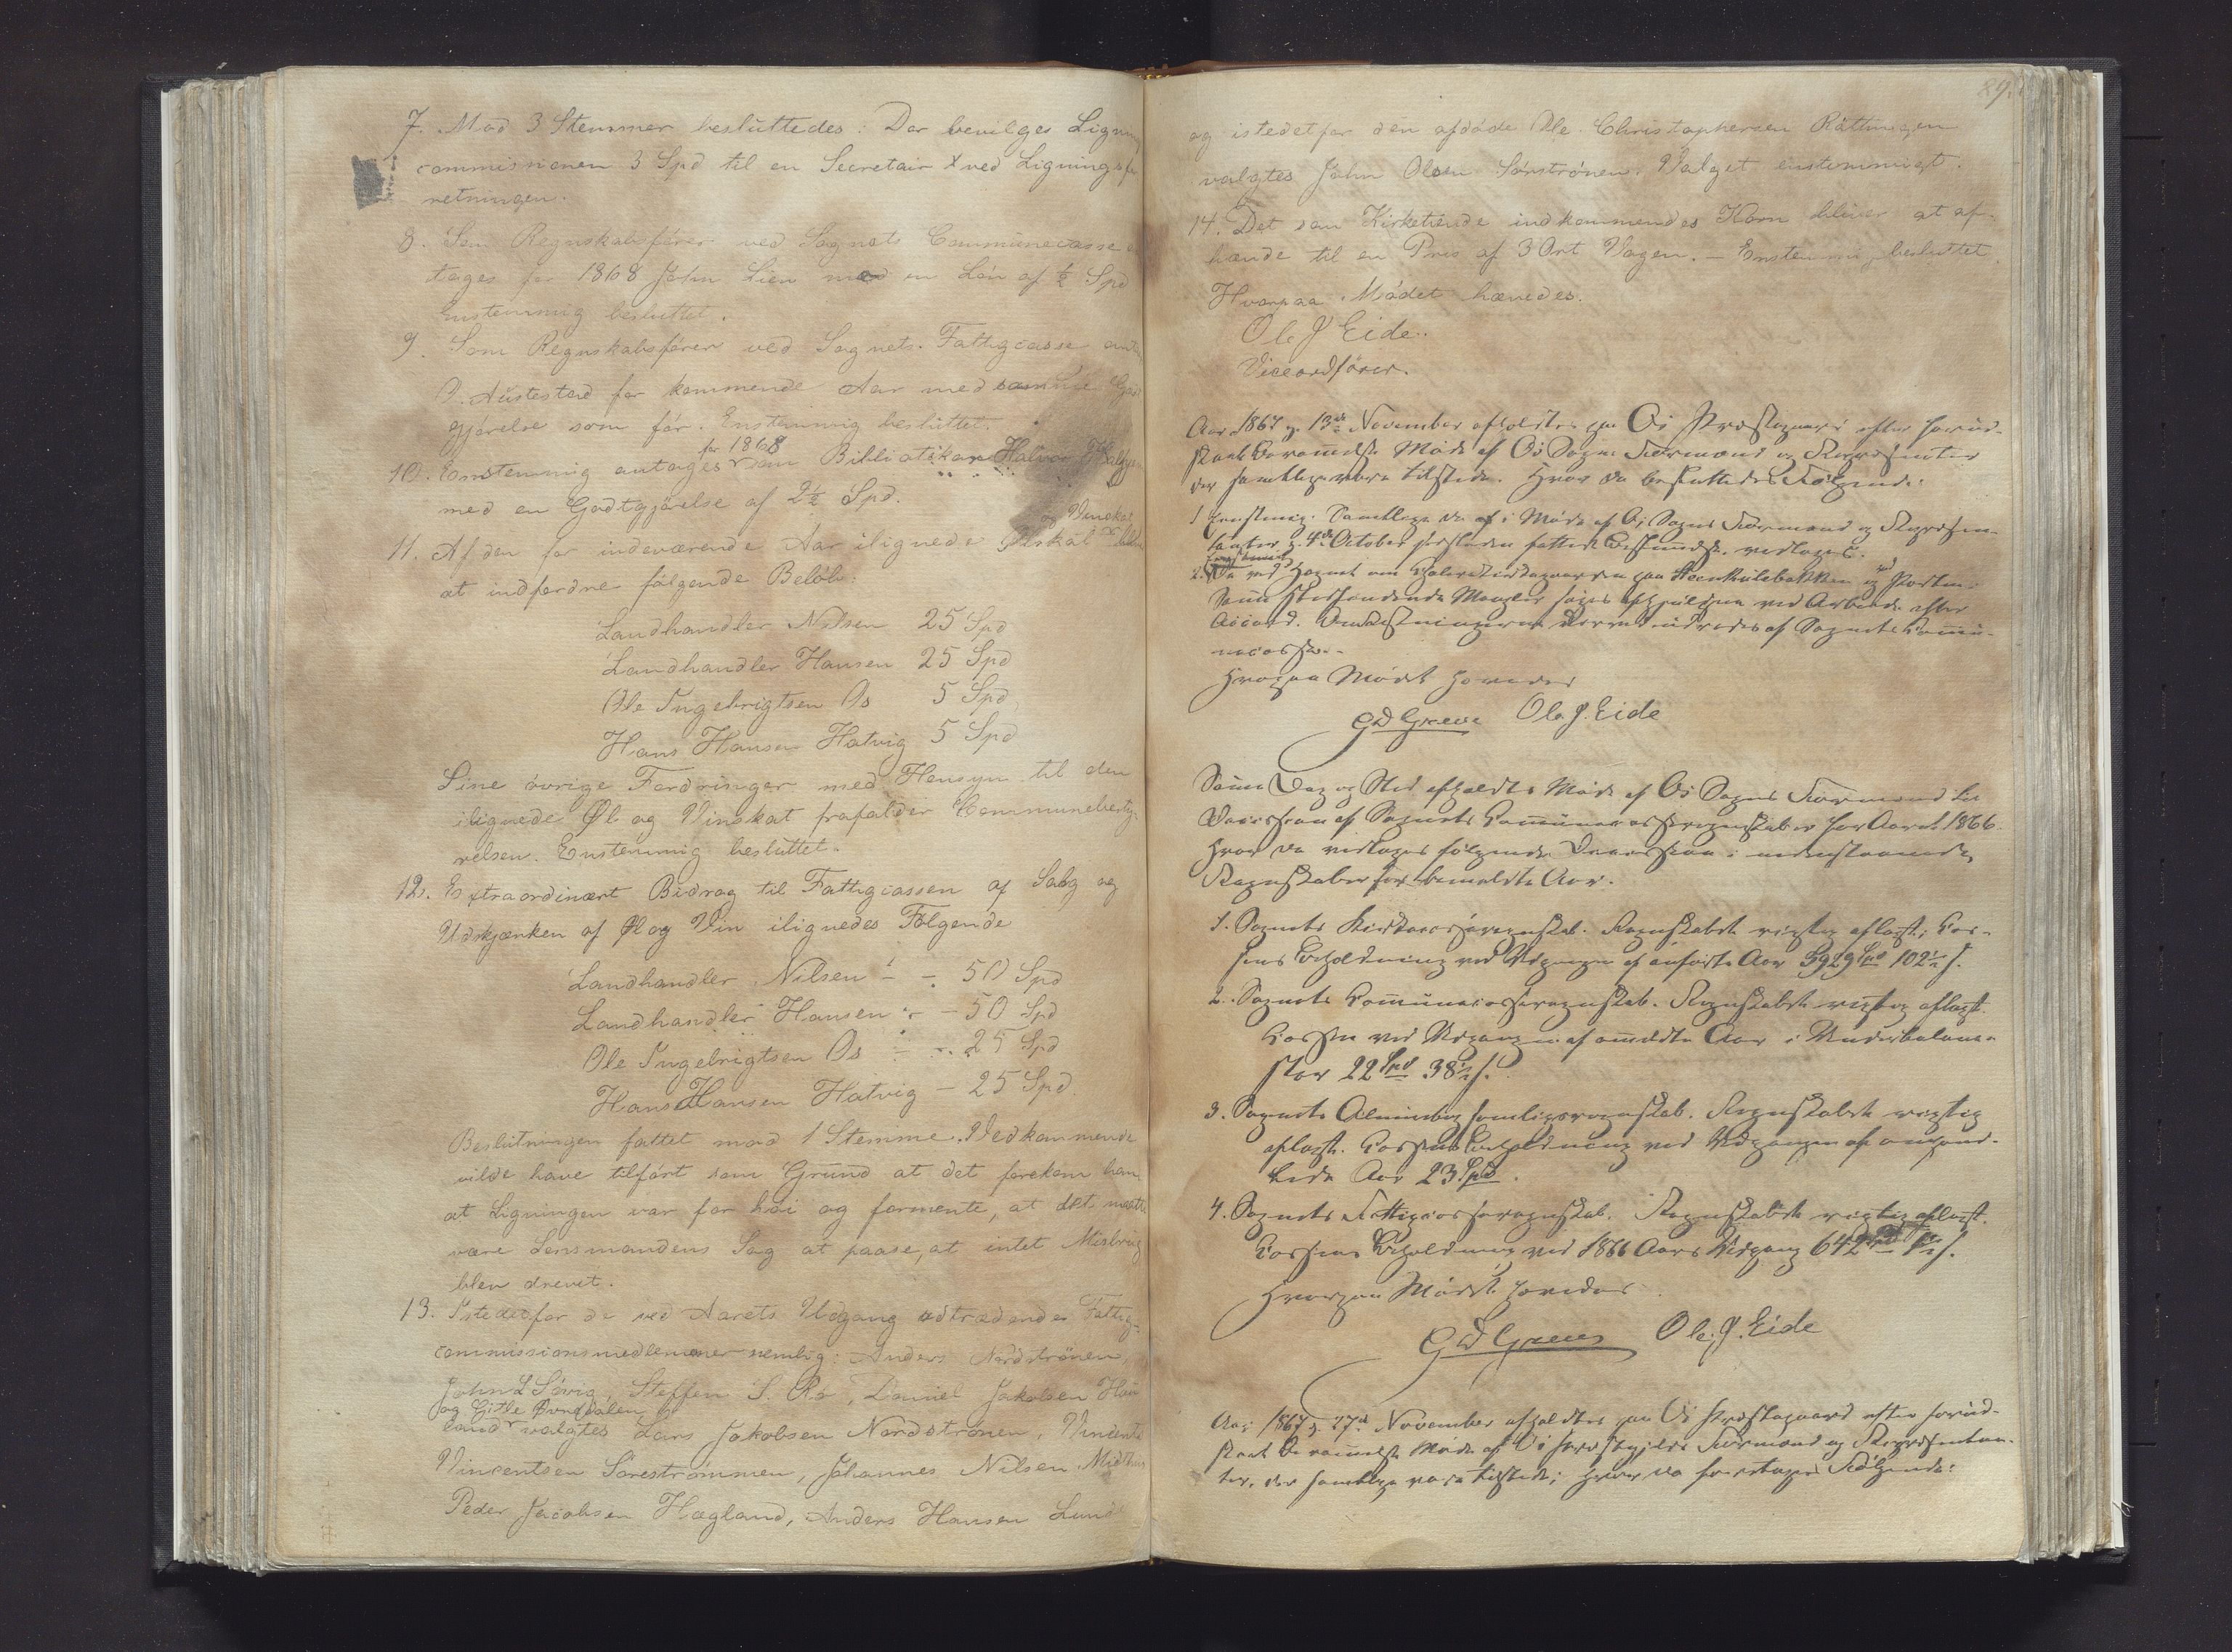 7. Mod 3 Stemmer besluttedes: Der bevilges Lignings
commissionen 3 Spd til en Secretair ved Ligningsfor
retningen.
8. Som Regnskabsfører ved Sognets Communecasse
tages for 1868 John Lien med en Løn af ½ Spd
Enstemmig besluttet.
9. Som Regnskabsfører ved Sognets Fattigcasse
O. Austestad for kommende Aar med samme God
gjørelse som før. Enstemmig besluttet.
for 1868
10. Enstemmig antages som Bibliothekar Halvor
med en Godtgjørelse af 2½ Spd.
og Vinskat
11. Af den for indeværende Aar ilignede Ølskat
at indfordre følgende Beløb:
Landhandler Nilsen 25 Spd
Landhandler Hansen 25 Spd
Ole Ingebrigtsen Os 5 Spd
Hans Hansen Hatvig 5 Spd
Sine øvrige Fordringer med Hensyn til den
ilignede Øl og Vinskat frafalder Communebesty-
relsen. Enstemmig besluttet.
12. Extraordinært Bidrag til Fattigcassen af Salg og
Udskjænken af Øl og Vin ilignedes Følgende
Landhandler Nilsen - - 50 Spd
Landhandler Hansen - - 50 Spd
Ole Ingebrigtsen Os - - 25 Spd
Hans Hansen Hatvig - 25 Spd
Beslutningen fattet mod 1 Stemme. Vedkommende
vilde have tilført som Grund at det forekom ham
at Ligningen var for høi og formente, at det maatte
være Lensmandens Sag at paase, at intet Misbrug
blev drevet.
13. Istedetfor de ved Aarets Udgang udtrædende Fattig-
commissionsmedlemmer nemlig: Anders Nordstrønen,
John L Søvig, Steffen S. Ro, Daniel Jakobsen Hau
og Gitle Øvredalen
land valgtes Lars Jakobsen Nordstrønen, Vincents
Vincentsen Sørestrømmen, Johannes Nilsen Midthus
Peder Jacobsen Hægland, Anders Hansen Lund
89.
og istedetfor den afdøde Ole Christophersen Røttingen
valgtes John Olsen Sørstrønen. Valget enstemmigt.
14. Det som Kirketiende indkommendes Korn bliver at af-
hænde til en Pris af 3 Ort Vogen. - Enstemmig besluttet.
Hvorpaa Mødet hævedes.
Ole J Eide.
Viceordfører.
Aar 1867 d. 13de November afholdtes paa Os Præstegaard efter forud-
skeet Berammelse Møde af Os Sogns Formænd og Repræsentanter
der samtlige vare tilstede. Hvor da besluttedes Følgende:
1 Enstemig. Samtlige de i Møde af Os Sogns Formænd og Repræsen-
tanter d. 4de October fattede Bestemmelser vedtages.
Enstemmigt
2. De ved paa Steenkulebakken og ved
Mangler søges afhjulpne ved Arbeide efter
Accord. Omkostningerne derved udredes af Sognets Commu-
necasse.
Hvorpaa Mødet hævedes
GD Greve Ole J. Eide
Samme Dag og Sted afholdtes Møde af Os Sogns Formænd til
Decision af Sognets Communecasseregnskaber for Aaret 1866
hvor da vedtoges følgende Decision i nedenstaaende
Regnskaber for bemeldte Aar.
1. Sognets Regnskabet rigtig aflagt; Cas-
sens Beholdning ved Udgangen af anførte Aar 3929 Spd 102½ s.
2. Sognets Communecasseregnskab. Regnskabet rigtig aflagt.
Cassen ved Udgangen af ommeldte Aar i Underbalance
stor 22 Spd 38½ s.
3. Sognets Regnskabet rigtig
aflagt. Cassens Beholdning ved Udgangen af omhand-
lede Aar 23 Spd.
4. Sognets Fattigcasseregnskab. Regnskabet rigtig aflagt.
Cassens Beholdning ved 1866 Aars Udgang 642 Spd
Hvorpaa Mødet hævedes
GD Greve Ole J. Eide
Aar 1867 d. 27de November afholdtes paa Os Præstegaard efter forud-
skeet Berammelse Møde af Os Præstegjelds Formænd og Repræsentan-
ter, der samtlige vare tilstede; hvor da foretoges Følgende: